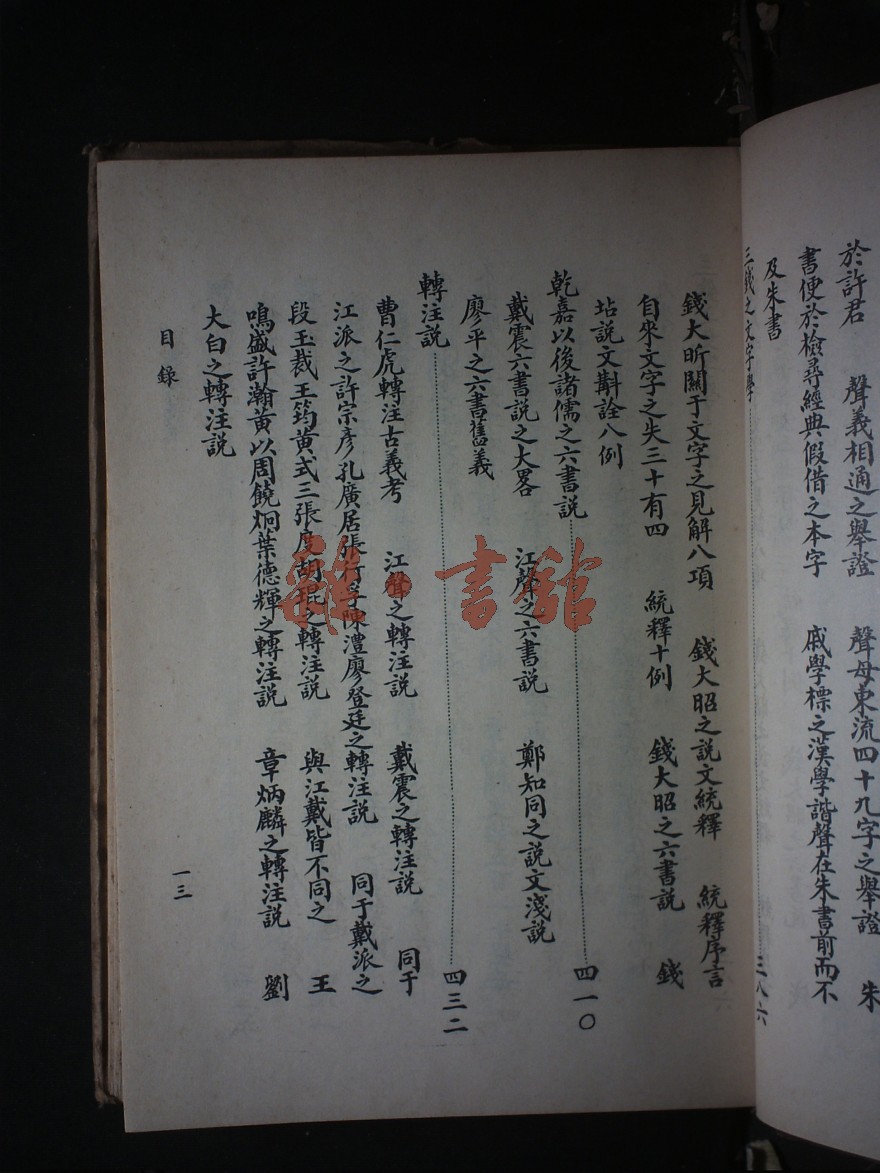 於許君　聲義相通之舉證　聲母東流四十九字之舉證　朱
書便於檢尋經典假借之本字　戚學標之漢學諧聲在朱書前而不
及朱書
三錢之文字學 三八六
錢大昕關于文字之見解八項　錢大昭之說文統釋　統釋序言
自來文字之失三十有四　統釋十例　錢大昭之六書說　錢
坫說文斠詮八例
乾嘉以後諸儒之六書說 四一〇
戴震六書說之大畧　江聲之六書說　鄭知同之說文淺說
廖平之六書舊義
轉注說 四三二
曹仁虎轉注古義考　江聲之轉注說　戴震之轉注說　同于
江派之許宗彥孔廣居張行孚陳澧廖登廷之轉注說　同于戴派之
段玉裁王筠黃式三張度胡琨之轉注說　與江戴皆不同之　王
鳴盛許瀚黃以周饒炯葉德輝之轉注說　章炳麟之轉注說　劉
大白之轉注說
目錄
一三
雜·書館